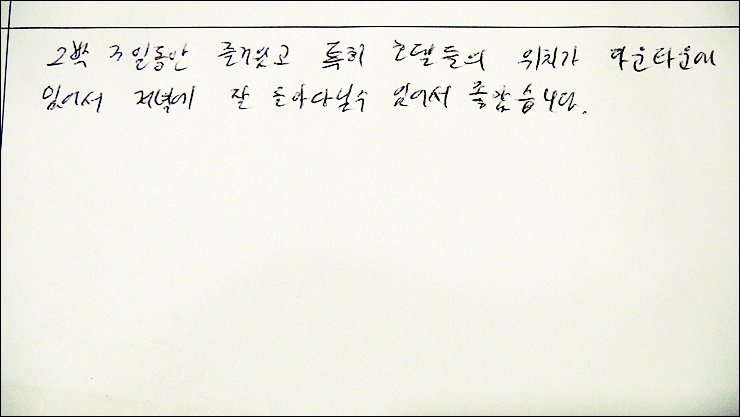 2박 3일동안 즐거웠고 특히 호텔들의 위치가 다운타운에
있어서 저녁에 잘 돌아다닐수 있어서 좋았습니다.